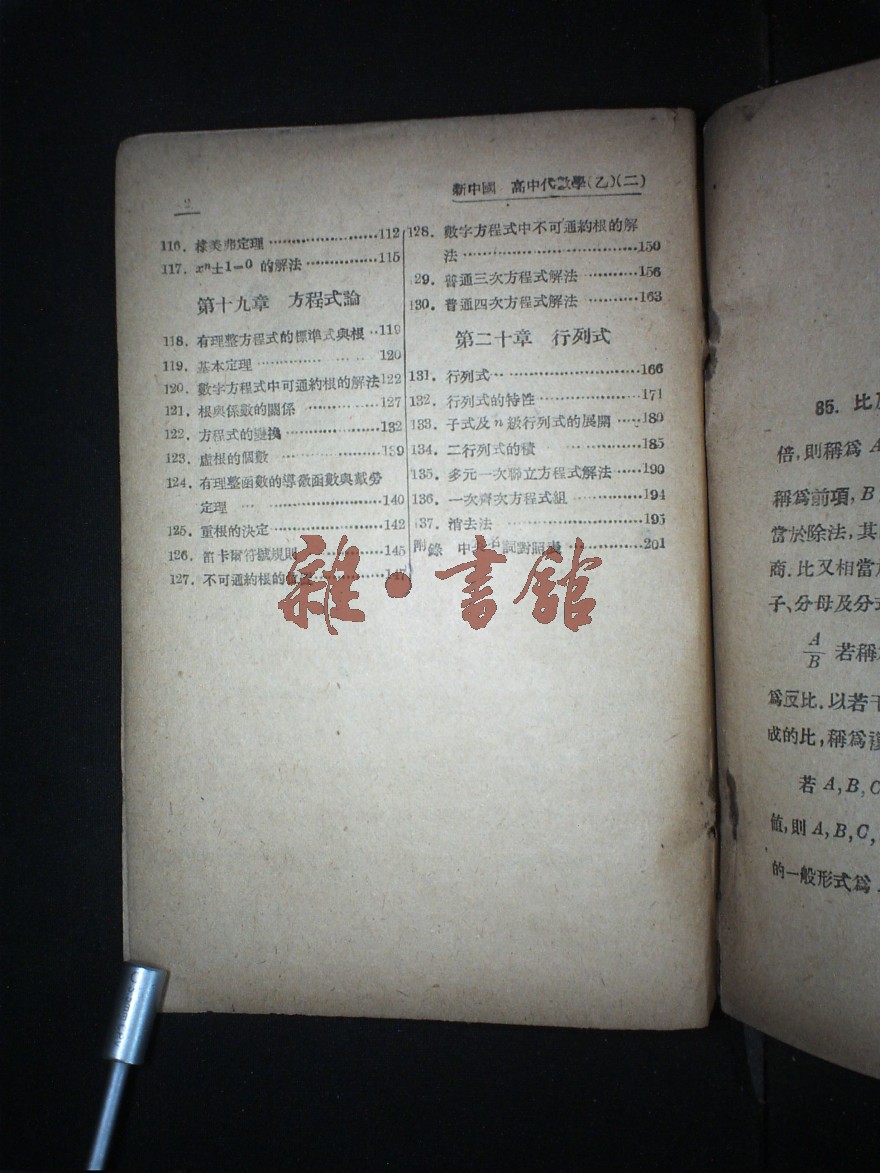 2
新中國 高中代數學(乙)(二)
116. 棣美弗定理 ……………… 112
117. xⁿ±1=0 的解法 ……………… 115
第十九章 方程式論
118. 有理整方程式的標準式與根 ‥119
119. 基本定理 ……………… 120
120. 數字方程式中可通約根的解法122
121. 根與係數的關係 ……………… 127
122. 方程式的變換 ……………… 132
123. 虛根的個數 ……………… 139
124. 有理整函數的導微函數與戴勞
定理 ……………… 140
125. 重根的決定 ……………… 142
126. 笛卡爾符號規則 ……………… 145
127. 不可通約根的 ……………… 147
128. 數字方程式中不可通約根的解
法 ……………… 150
29. 普通三次方程式解法 ………… 156
130. 普通四次方程式解法 ………… 163
第二十章 行列式
131. 行列式 ……………… 166
132. 行列式的特性 ……………… 171
133. 子式及 n 級行列式的展開 …… 180
134. 二行列式的積 ……………… 185
135. 多元一次聯立方程式解法 …… 190
136. 一次齊次方程式組 ………… 194
37. 消去法 ……………… 195
附錄 中 詞對照表 ………… 201
雜·書館
85. 比
倍,則稱爲 A
稱爲前項, B
當於除法,其
商.比又相當
子、分母及分
A/B 若稱
爲反比.以若干
成的比,稱爲
若 A, B, C
值,則 A, B, C,
的一般形式爲